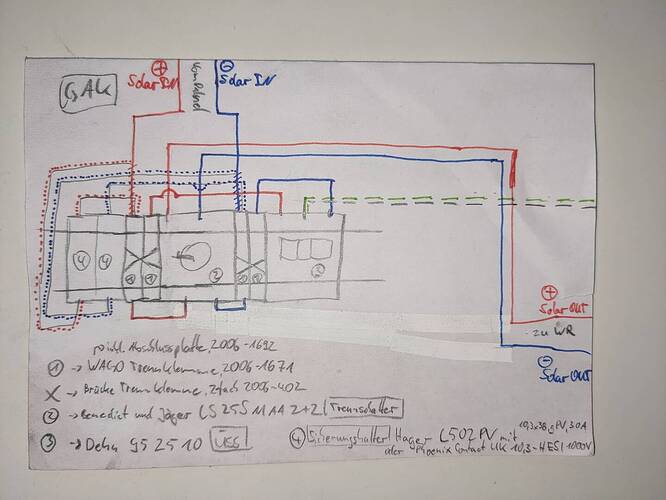 GAK
+
Solar IN
vom Panel
-
Solar IN
4 4 1 1 2 1 1 2
+
Solar OUT
zu WR
-
Solar OUT
Abschlussplatte, 2006-1692
1 → WAGO Trennklemme, 2006-1671
X → Brücke Trennklemme, 2fach 2006-402
2 → Benedict und Jäger LS25S M AA 2+2 Trennschalter
3 → Dehn 952510 ÜSS
4 Sicherungshalter Hager L502PV mit 10,3x38 gPV, 30A
oder Phoenix Contact UK 10,3-HESI 1000V